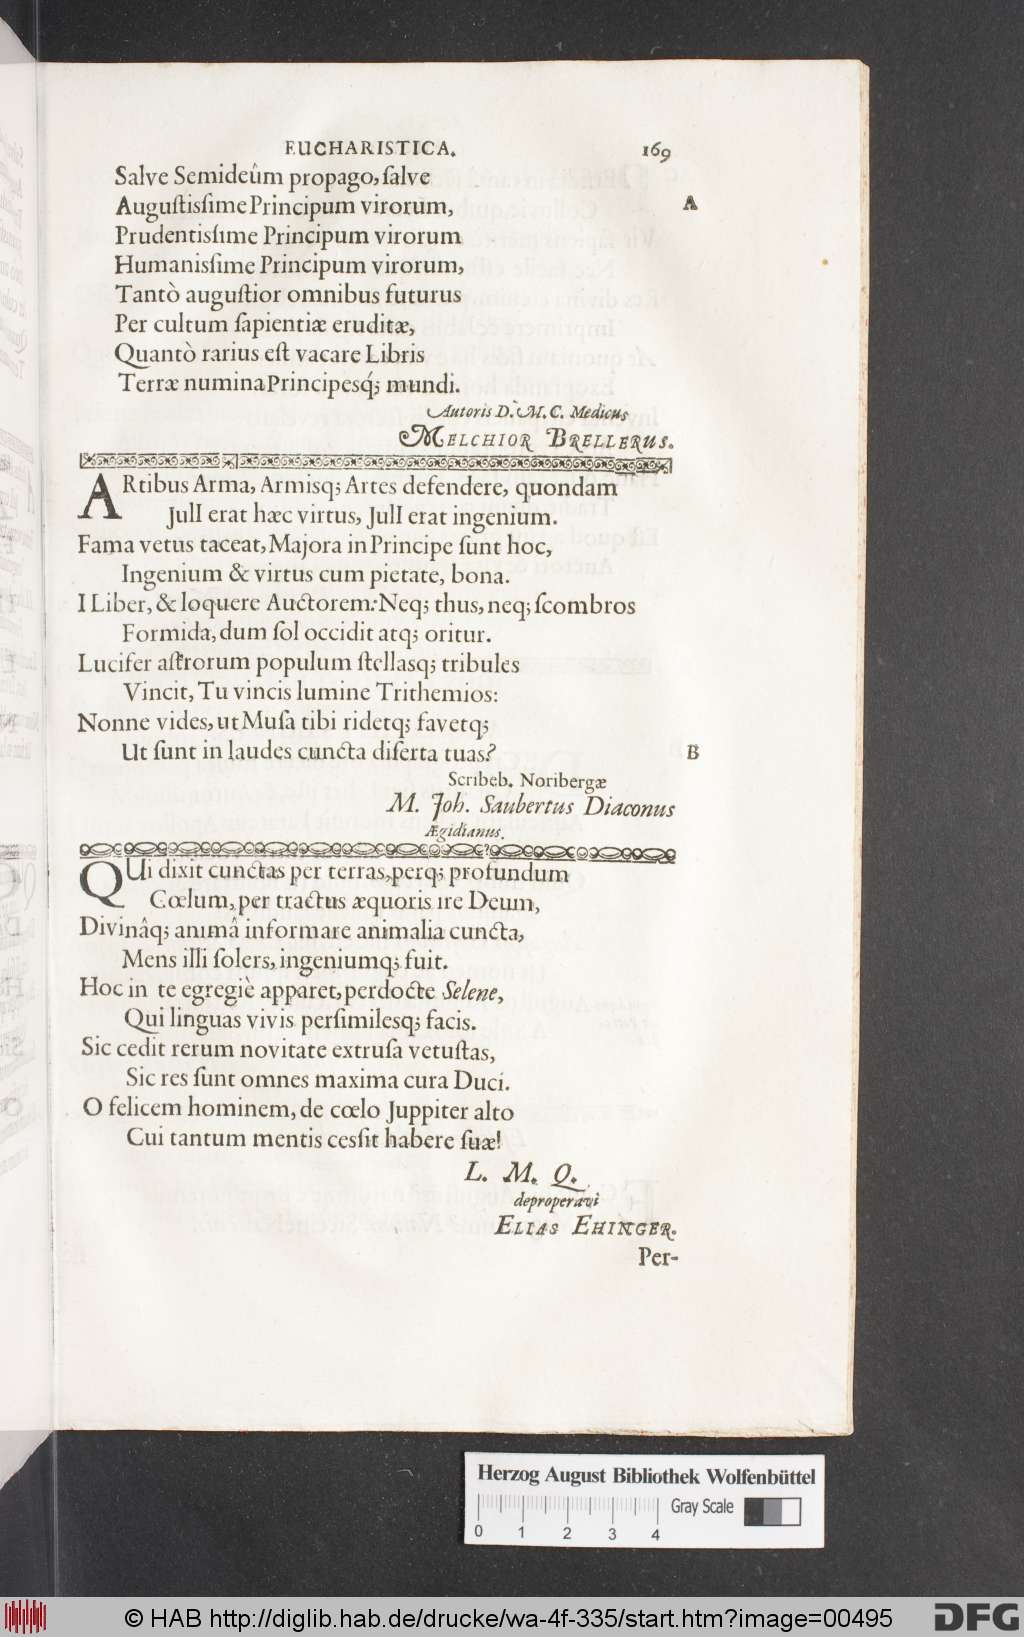 EUCHARISTICA. 169
Salve Semideûm propago, ſalve
Auguſtisſime Principum virorum, A
Prudentisſime Principum virorum
Humanisſime Principum virorum,
Tantò auguſtior omnibus futurus
Per cultum ſapientiæ eruditæ,
Quantò rarius eſt vacare Libris
Terræ numina Principesq́; mundi.
Autoris D. M. C. Medicus
MELCHIOR BRELLERUS.
ARtibus Arma, Armisq; Artes defendere, quondam
JulI erat hæc virtus, JulI erat ingenium.
Fama vetus taceat, Majora in Principe ſunt hoc,
Ingenium & virtus cum pietate, bona.
I Liber, & loquere Auctorem: Neq; thus, neq; ſcombros
Formida, dum ſol occidit atq; oritur.
Lucifer aſtrorum populum ſtellasq; tribules
Vincit, Tu vincis lumine Trithemios:
Nonne vides, ut Muſa tibi ridetq; favetq;
Ut ſunt in laudes cuncta diſerta tuas? B
Scribeb. Noribergæ
M. Joh. Saubertus Diaconus
Ægidianus.
QUi dixit cunctas per terras, perq; profundum
Cœlum, per tractus æquoris ire Deum,
Divinâq; animâ informare animalia cuncta,
Mens illi ſolers, ingeniumq; fuit.
Hoc in te egregiè apparet, perdocte Selene,
Qui linguas vivis perſimilesq; facis.
Sic cedit rerum novitate extruſa vetuſtas,
Sic res ſunt omnes maxima cura Duci.
O felicem hominem, de cœlo Juppiter alto
Cui tantum mentis cesſit habere ſuæ!
L. M. Q.
deproperavi
ELIAS EHINGER.
Per-
Herzog August Bibliothek Wolfenbüttel
Gray Scale
0 1 2 3 4
© HAB http://diglib.hab.de/drucke/wa-4f-335/start.htm?image=00495
DFG